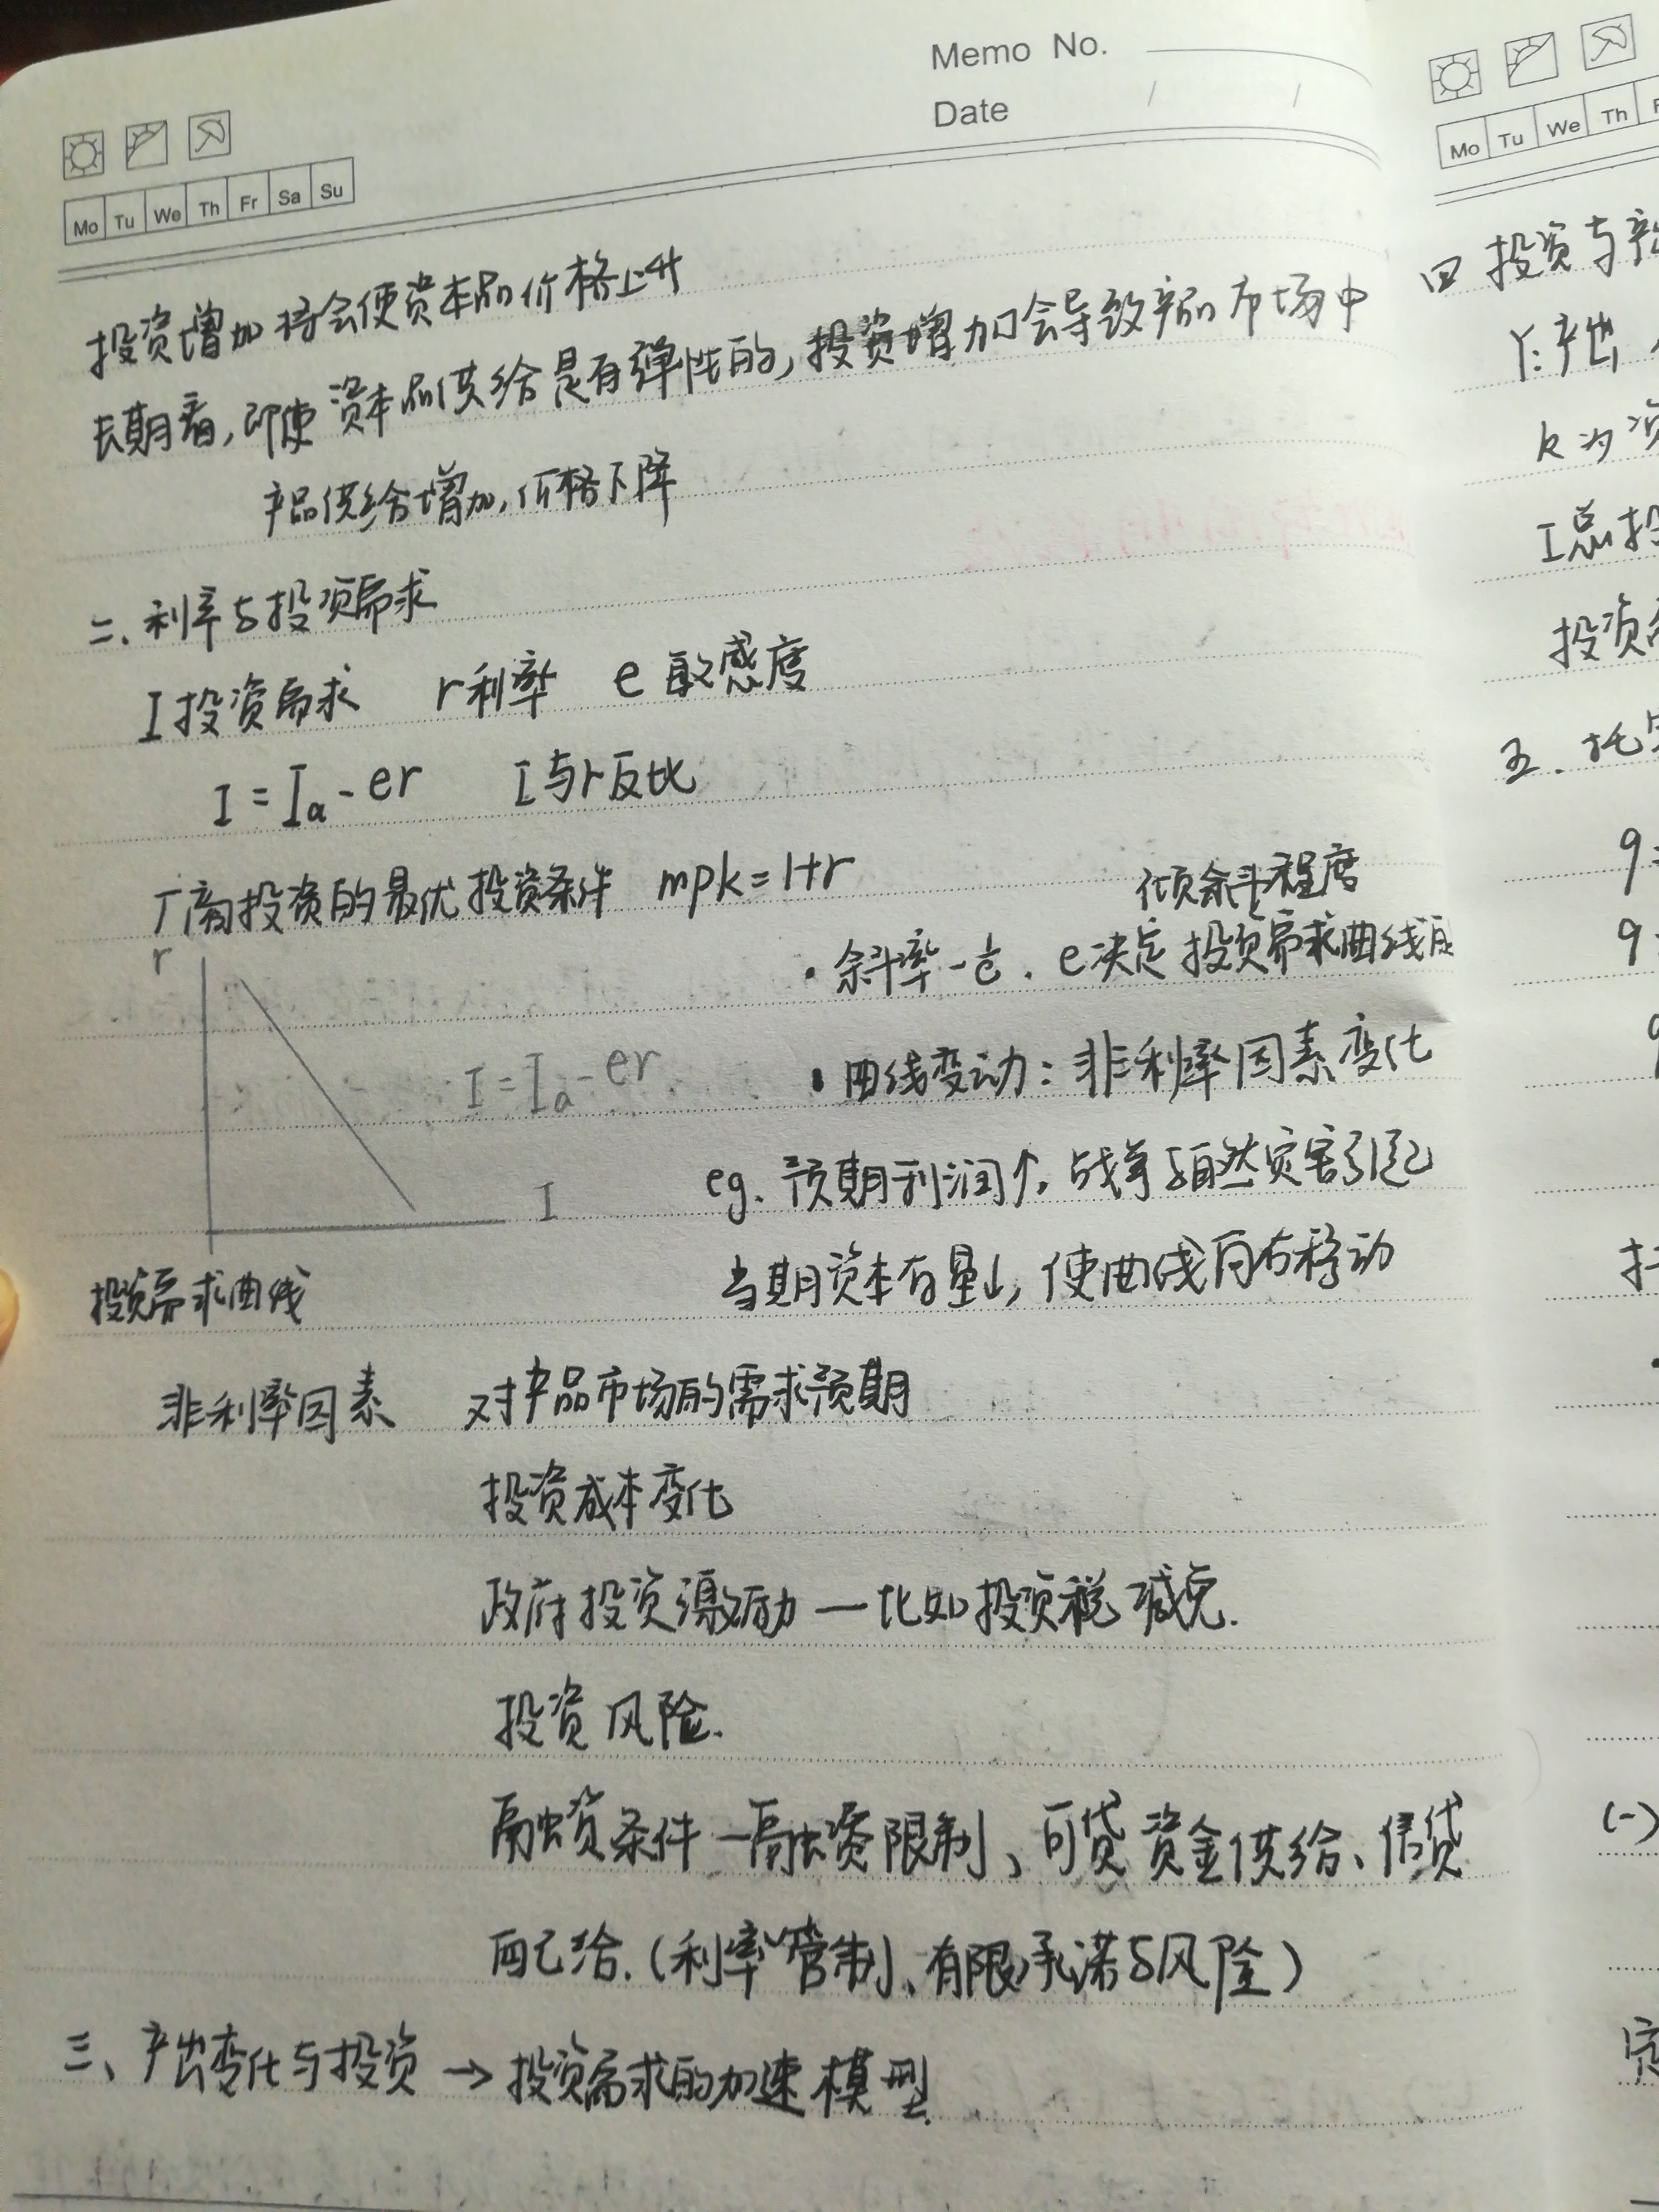 Memo No.
Date / /
Mo Tu We Th Fr Sa Su
投资增加将会使资本品价格上升
长期看,即使资本品供给是有弹性的,投资增加会导致产品市场中
产品供给增加,价格下降
二.利率与投资需求
I投资需求 r利率 e敏感度
I=Ia-er I与r反比
厂商投资的最优投资条件 mpk=1+r
倾斜程度
r
·斜率-1/e. e决定投资需求曲线
I=Ia-er.
·曲线变动:非利率因素变化
eg.预期利润↑,战争与自然灾害引起
I
当期资本存量↓,使曲线向右移动
投资需求曲线
非利率因素 对产品市场的需求预期
投资成本变化
政府投资激励—比如投资税减免.
投资风险.
融资条件—融资限制、可贷资金供给、信贷
配给.(利率管制、有限承诺与风险)
三、产出变化与投资→投资需求的加速模型.
Mo Tu We Th
四 投资与
Y:产出
K为资
I总投
投资
五.托
q=
q
q
(一)